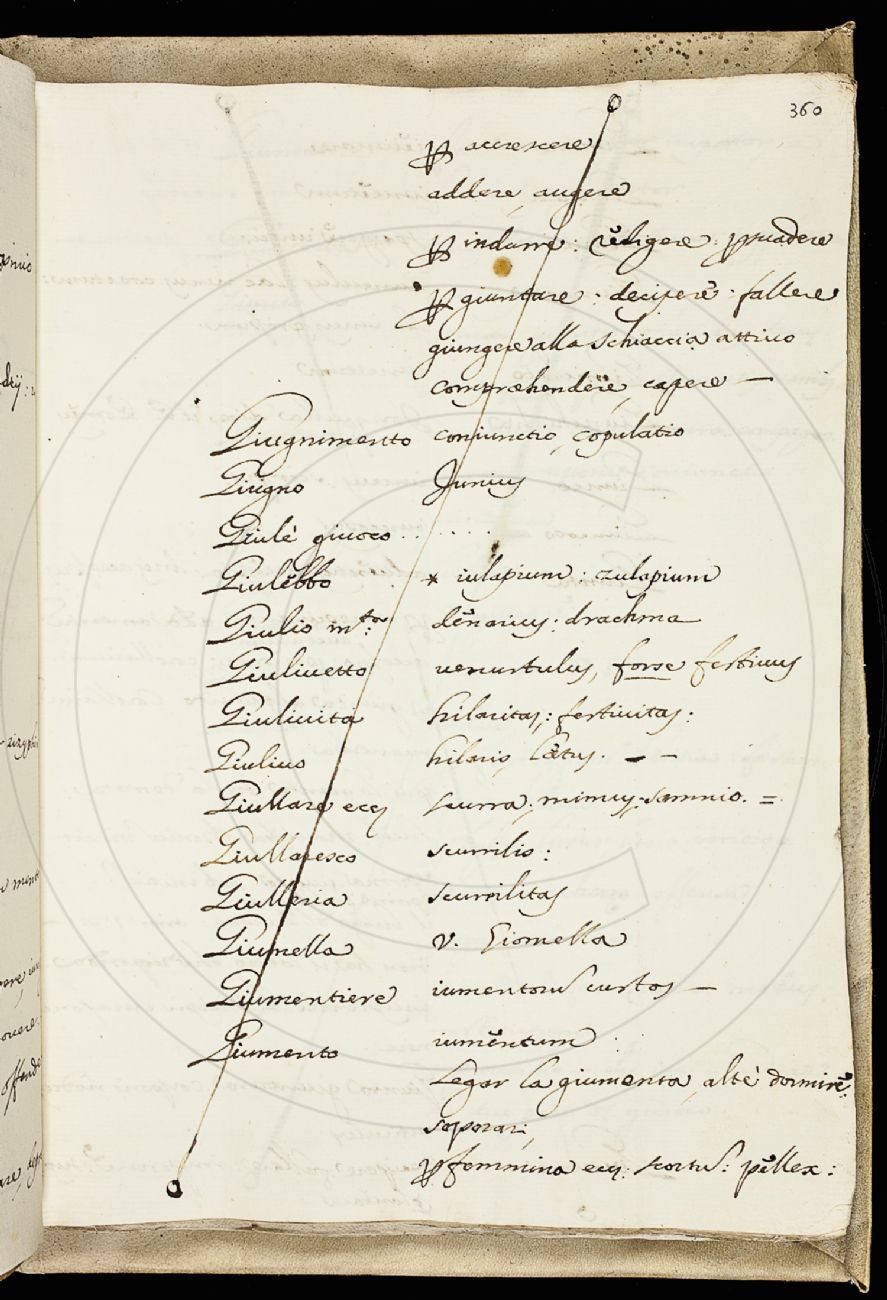 360
p accrescere
addere, augere
p indurre: redigere: psuadere
p giuntare: decipere: fallere
giungere alla schiaccia attivo
comprehendere, capere —
Giugnimento coniunctio, copulatio
Giugno Junius
Giulè giuoco . . . . . .
Giulebbo * iulapium: zulapium
Giulio denarius: drachma
Giulivetto venustulus, forse festivus
Giulività hilaritas: festivitas:
Giulivo hilaris, lætus. — —
Giullare scurra, mimus, sannio. =
Giullaresco scurrilis:
Giulleria scurrilitas
Giumella v. Giomella
Giumentiere iumentorũ custos —
Giumento iumentum
Legar la giumenta, altè dormire,
soporari,
p femmina scortũ: pellex: